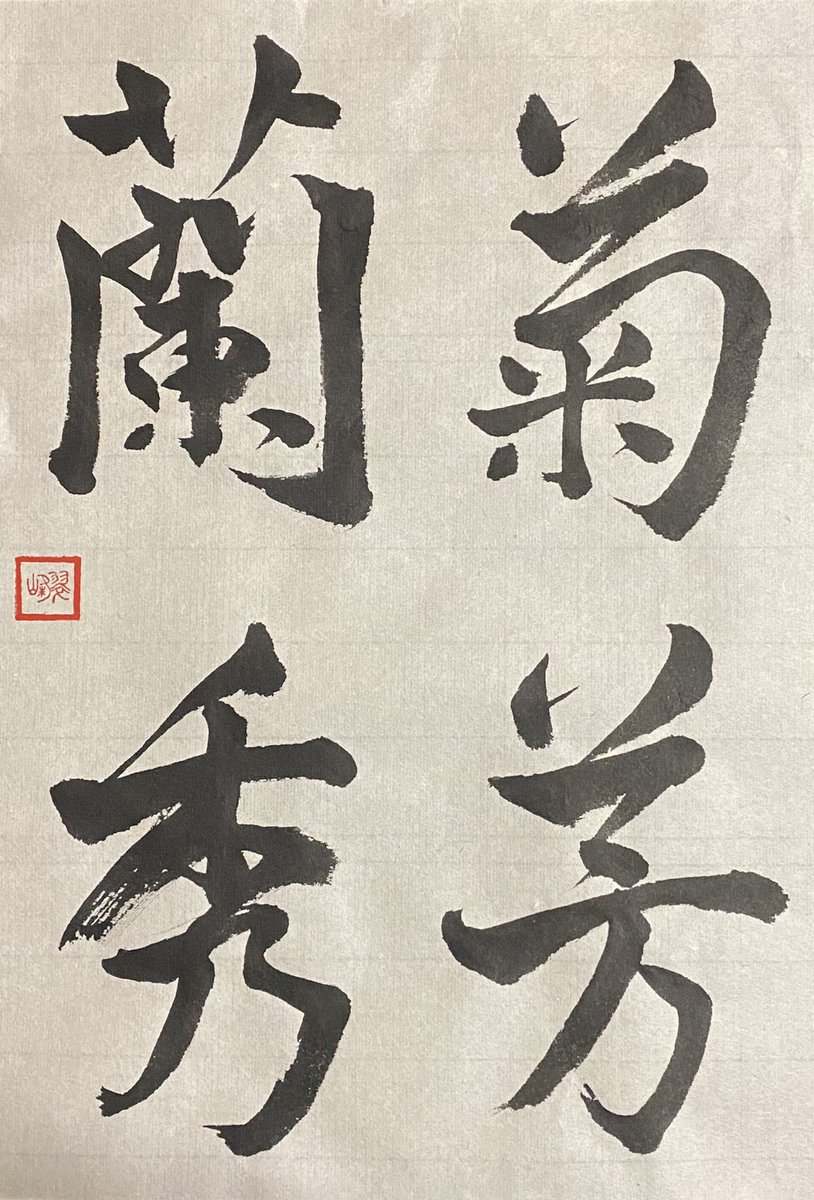 菊芳
蘭秀